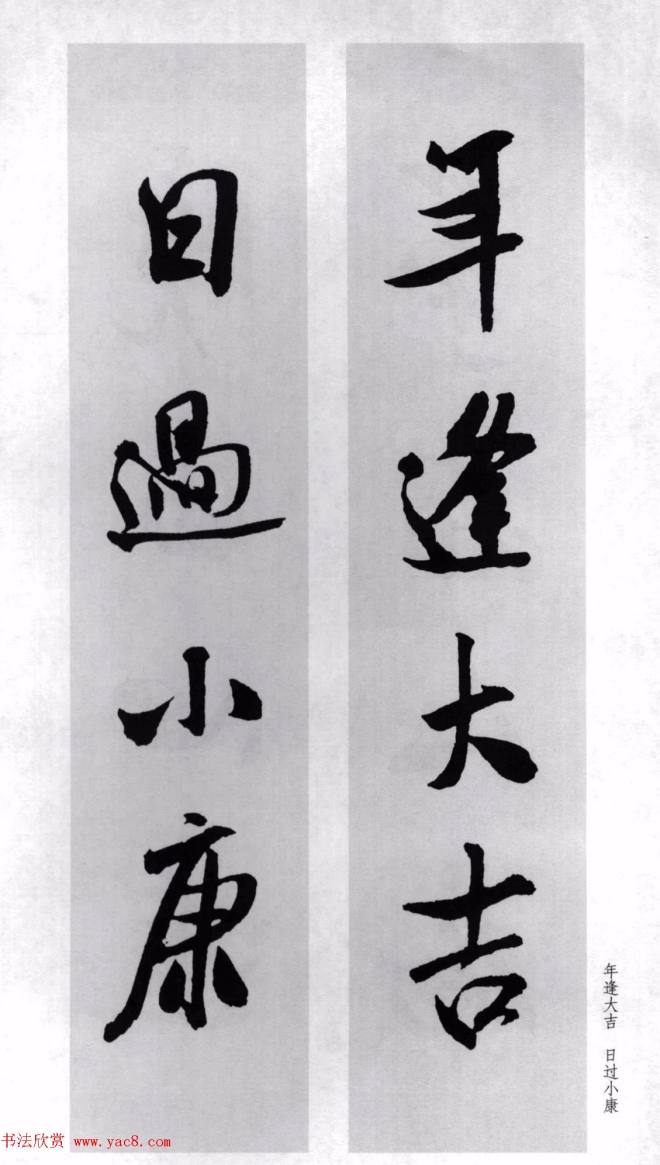 年逢大吉
日過小康
年逢大吉 日过小康
书法欣赏 www.yac8.com